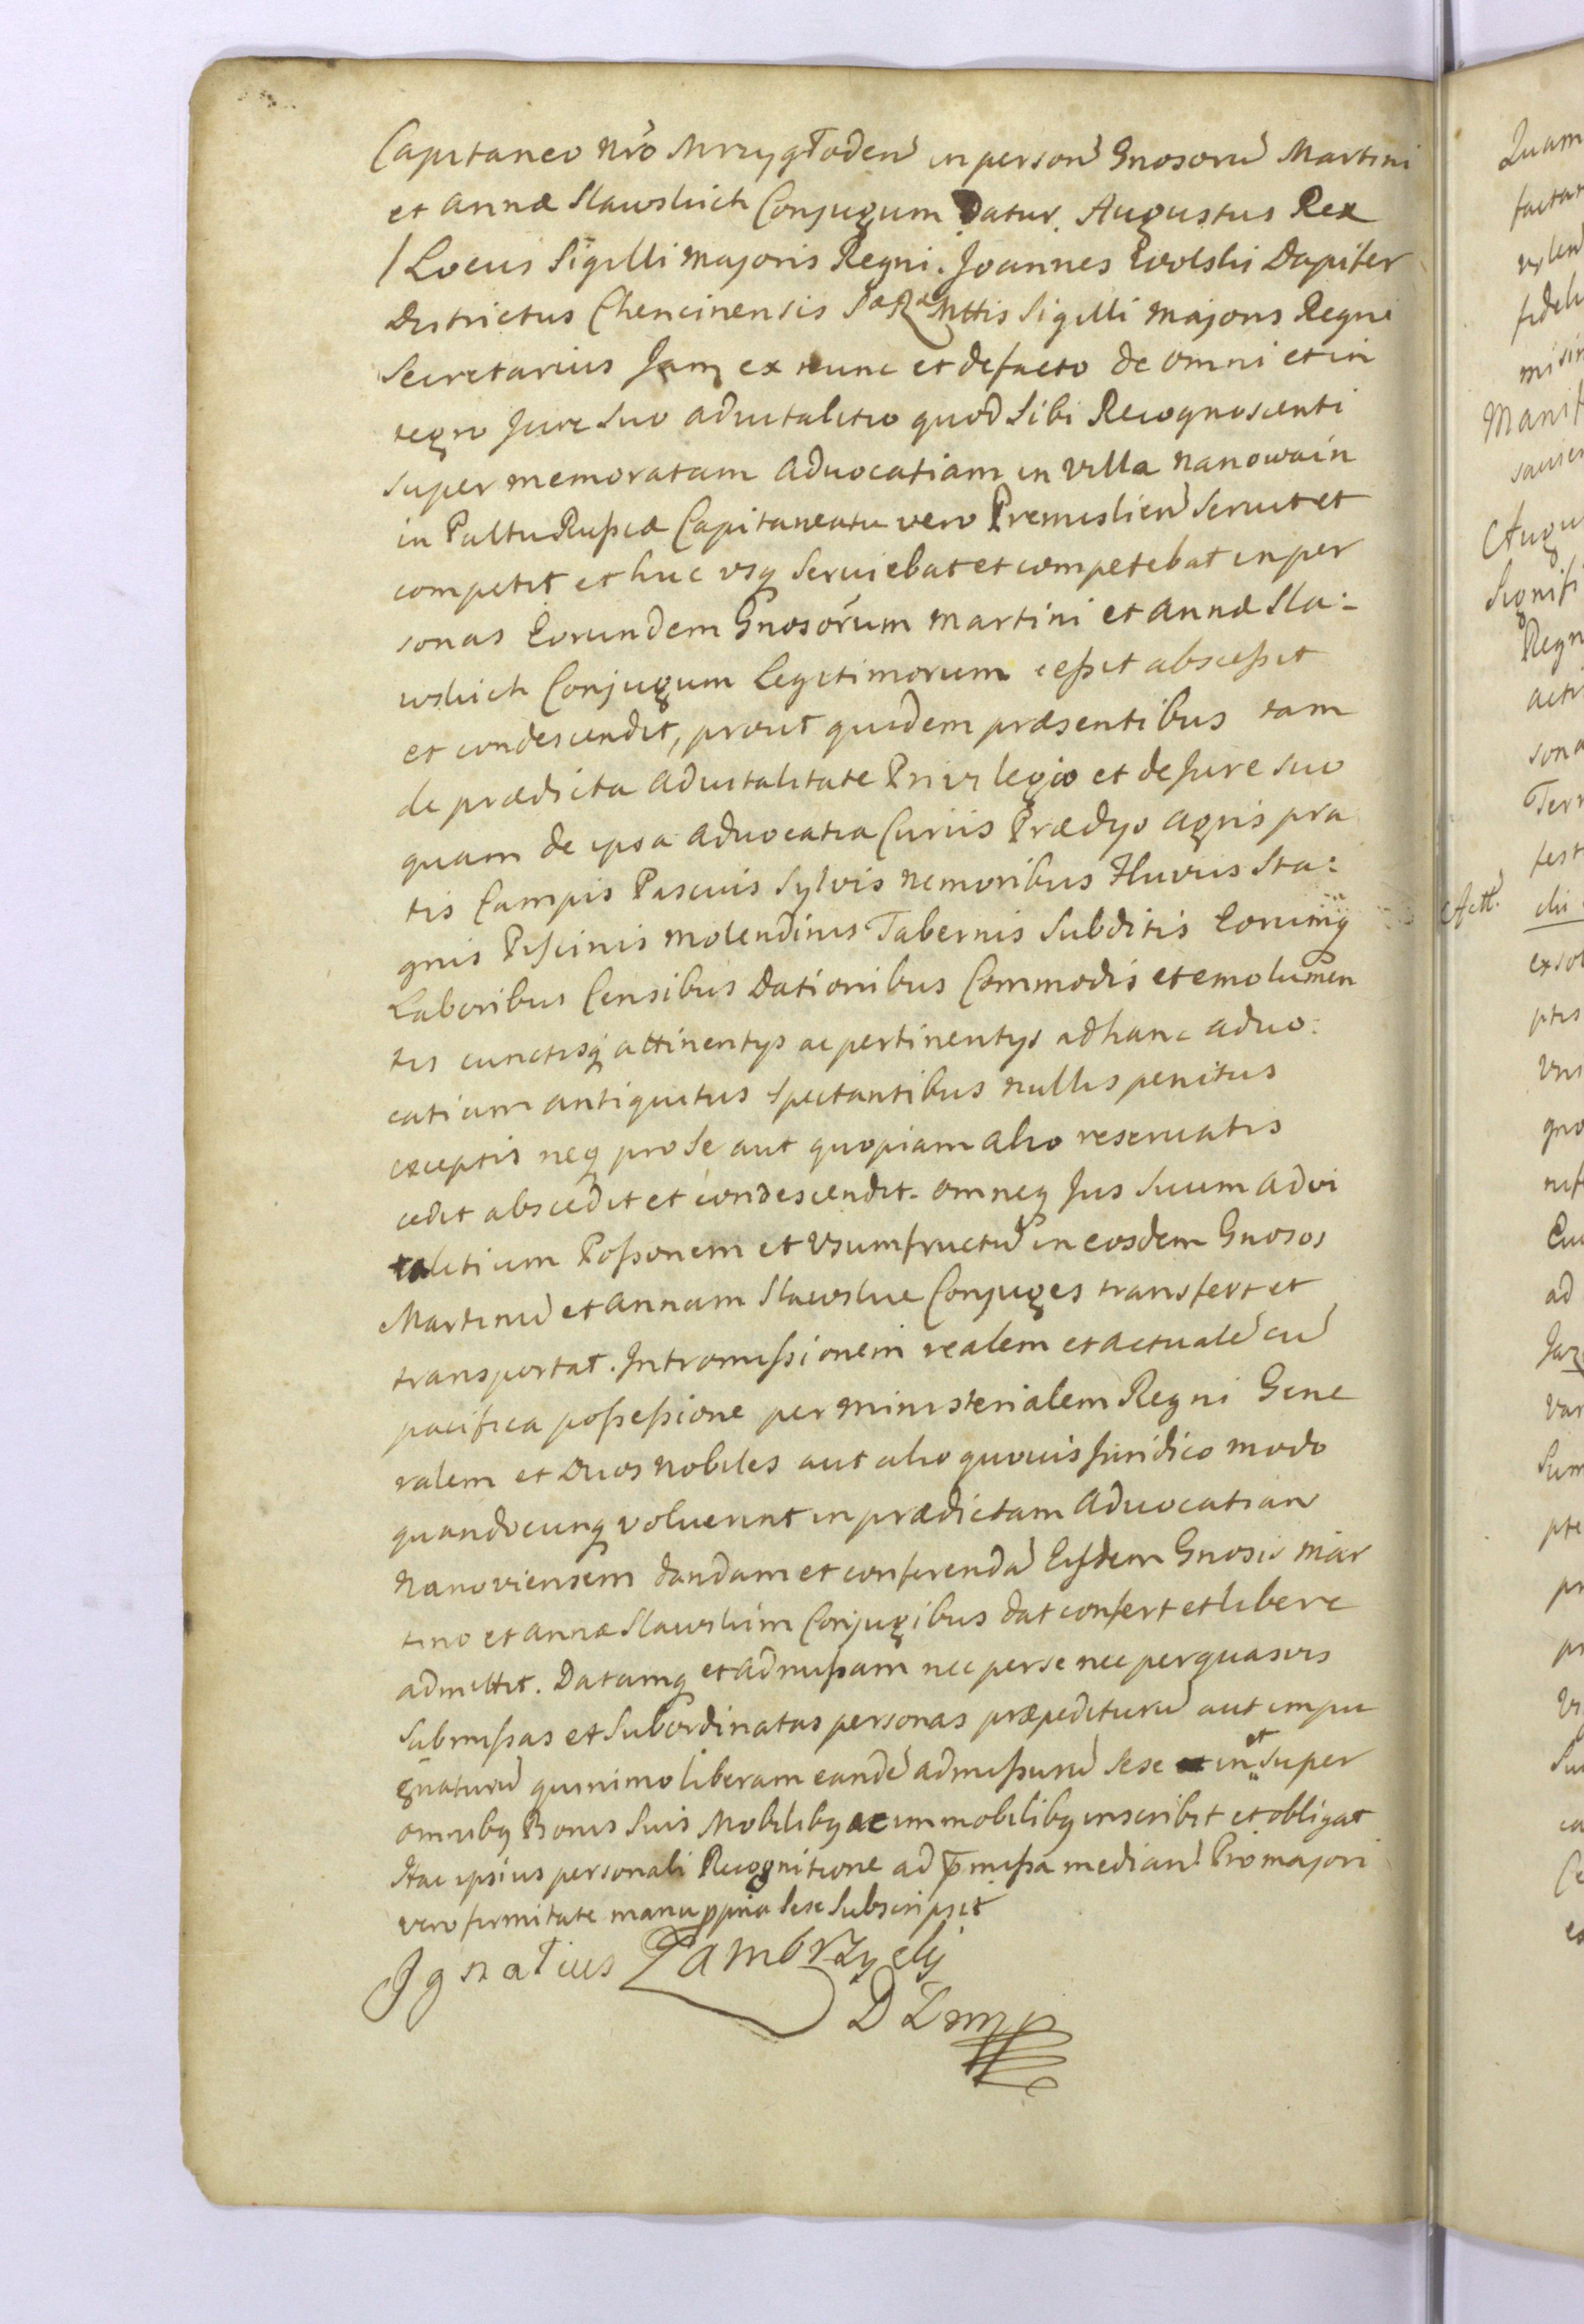 Capitaneo Nro Mrzygłoden in person Gnosoru Martini
et Annæ Sławskich Conjugum Datur. Augustus Rex
/Locus Sigilli Majoris Regni. Joannes Dapifer
Districtus Chencinensis Sæ Ræ Mttis Sigilli Majoris Regni
Secretarius Jam ex nunc et defacto de omni et in
tegro Jure suo advitalitio quod sibi Recognoscenti
super memoratam Advocatiam in Villa Nanowain
in Pałtu Rußiæ Capitaneatu vero Premislien servit et
competit et huc vsq serviebat et competebat in per
sonas Eorundem Gnosorum Martini et Annæ Sła:
wskich Conjugum Legitimorum ceßit absceßit
et condescendit, prout quidem præsentibus tam
de prædicta Advitalitate Privilegio et de Jure suo
quam de ipsa Advocatia Curiis Prædyo Agris pra
tis Campis Pascuis Sylvis Nemoribus Fluviis Sta:
gnis Piscinis Molendinis Tabernis Subditis Eorumq
Laboribus Censibus Dationibus Commodis et emolumen
tis cunctisq attinentys ac pertinentys ad hanc Advo:
catiam antiquitus spectantibus nullis penitus
exceptis neq pro se aut quopiam alio reservatis
cedit abscedit et condescendit. Omneq Jus Suum Advi
talitium Poßonem et Vsumfructu in eosdem Gnosos
Martinu et Annam Sławskie Conjuges transfert et
transportat. Intromißionem realem et actuale cu
pacifica poßeßione per Ministerialem Regni Gene
ralem et Duos Nobiles aut alio quovis Juridico modo
quandocunq voluerint in prædictam Advocatian
Nanoviensem dandam et conferenda Eisdem Gnosis Mar
tino et Annæ Sławskim Conjugibus dat confert et libere
admittit. Datamq et Admißam nec per se nec per quasvis
Submißas et Subordinatas personas præpedituru aut impu
gnaturu quinimo liberam eande admißuru sese in et super
omnibq Bonis Suis Mobilibq ac immobilibq inscribit et obligat
Hac ipsius personali Recognitione ad pmißa median! Pro majori
vero firmitate manu ppria sese Subscripsit
Ignatius Zambrzycky